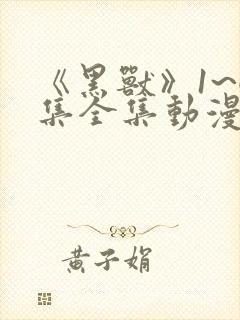 《黑獸》1~
集全集動漫
黃子娟